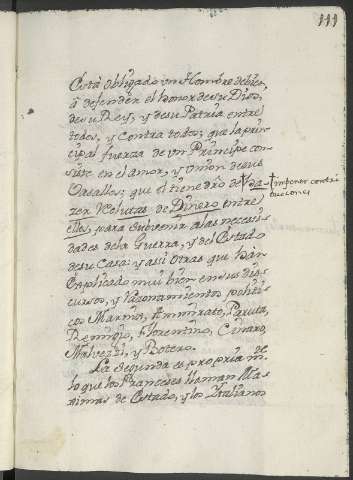 111
Està obligado un Hombre de bien,
à defender el honor de su Dios,
de su Rey, y de su Patria entre
todos, y contra todos; que la prin-
cipal fuerza de un Principe con-
siste en el amor, y union de sus
Vasallos; que el tiene dro de
imponer contri
buciones
zer Velutas de Dinero entre
ellos, para subvenir a las necesi-
dades de la Guerra, y del Estado
de su Casa: y assi otras que han
explicado mui bien en sus dis-
cursos, y razonamientos politi-
cos Marnio, Ammirato, Paruta,
Remigio, Florentino, Ciriaco,
Malvezzi, y Botero.
La segunda es propria de
lo que los Franceses llaman Ma-
ximas de Estado, y los Italianos